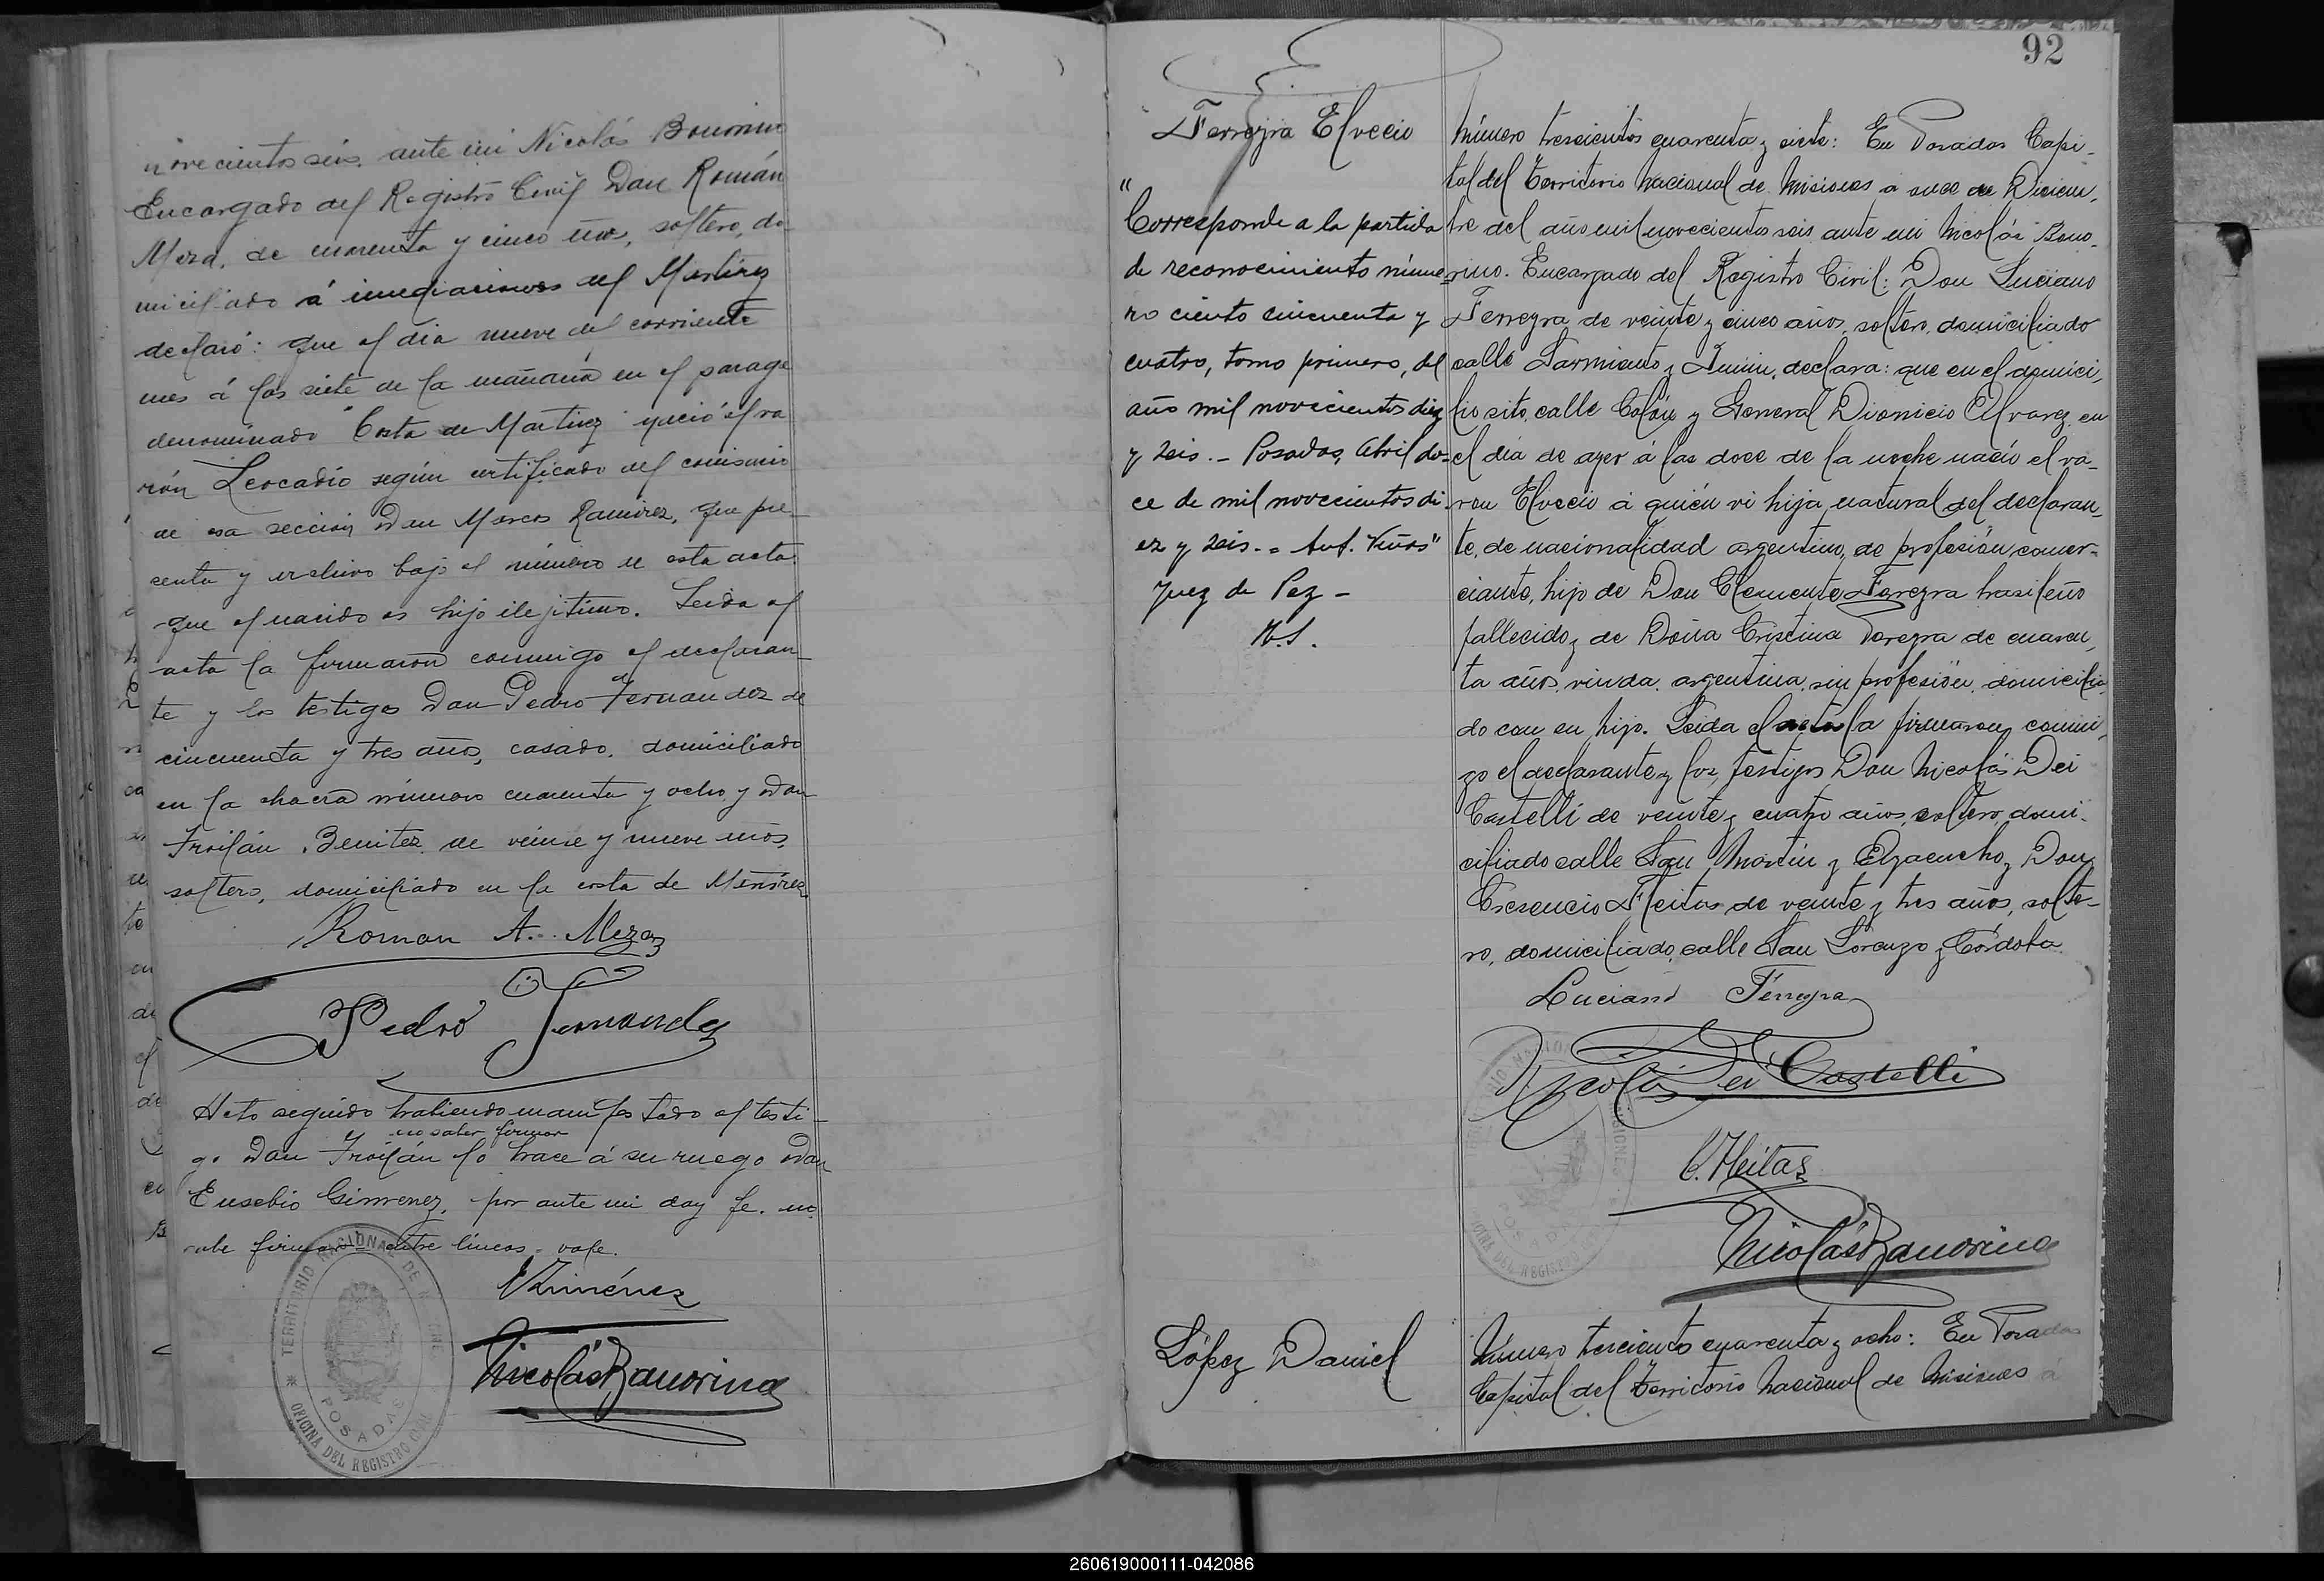 novecientos seis. ante mi Nicolás Bonorino
Encargado del Registro Civil Don Román
Meza, de cuarenta y cinco años, soltero, do
miciliado á inmediaciones del Martirez
declaró: que el dia nueve del corriente
mes á las siete de la mañana en el parage
denominado "Costa de Martirez" nació el va
rón Leocadio según certificado del comisario
de esa sección Don Marcos Ramirez, que pre-
senta y archivo bajo el número de esta acta.
que el nacido es hijo ilejitimo. Leida el
acta la firmaron conmigo el declaran-
te y los testigos Don Pedro Fernandez de
cincuenta y tres años, casado, domiciliado
en la chacra número cuarenta y ocho y Don
Froilán Benitez de veinte y nueve años,
soltero, domiciliado en la costa de
Roman A. Meza
Pedro Fernandez
Acto seguido habiendo manifestado el testi-
no saber firmar
go Don Froilán lo hace á su ruego Don
Eusebio Gimenez, por ante mi doy fe. no
sabe firmar = entre líneas = vale.
EXiménez
Nicolás Bonorino
TERRITORIO NACIONAL DE MISIONES
POSADAS
OFICINA DEL REGISTRO CIVIL
92
Ferreyra Elvecio
"Corresponde a la partida
de reconocimiento núme-
ro ciento cincuenta y
cuatro, tomo primero, del
año mil novecientos diez
y seis. - Posadas, Abril do-
ce de mil novecientos di-
ez y seis. = Ant. Viñas"
Juez de Paz -
H.S.
Número trescientos cuarenta y siete: En Posadas Capi-
tal del Territorio Nacional de Misiones a once de Diciem-
bre del año mil novecientos seis ante mi Nicolás Bono-
rino. Encargado del Registro Civil: Don Luciano
Ferreyra de veinte y cinco años, soltero, domiciliado
calle Sarmiento y Junin, declara: que en el domici-
lio sito calle Colón y General Dionicio Alvarez en
el día de ayer á las doce de la noche nació el va-
ron Elvecio á quién vi hijo natural del declaran-
te, de nacionalidad argentino, de profesión comer-
ciante, hijo de Don Clemente Ferreyra brasileño
fallecido y de Doña Cristina Pereyra de cuaren-
ta años, viuda, argentina, sin profesión, domicilia-
do con su hijo. Leida el acta la firmaron conmi-
go el declarante y los testigos Don Nicolás Dei
Castelli de veinte y cuatro años, soltero, domi-
ciliado calle San Martin y Ayacucho y Don
Cresencio Fleitas de veinte y tres años, solte-
ro, domiciliado calle San Lorenzo y Córdoba
Luciano Ferreyra
Nicolás Dei Castelli
C. Fleitas
Nicolás Bonorino
López Daniel
Número trescientos cuarenta y ocho: En Posadas
Capital del Territorio Nacional de Misiones á
260619000111-042086